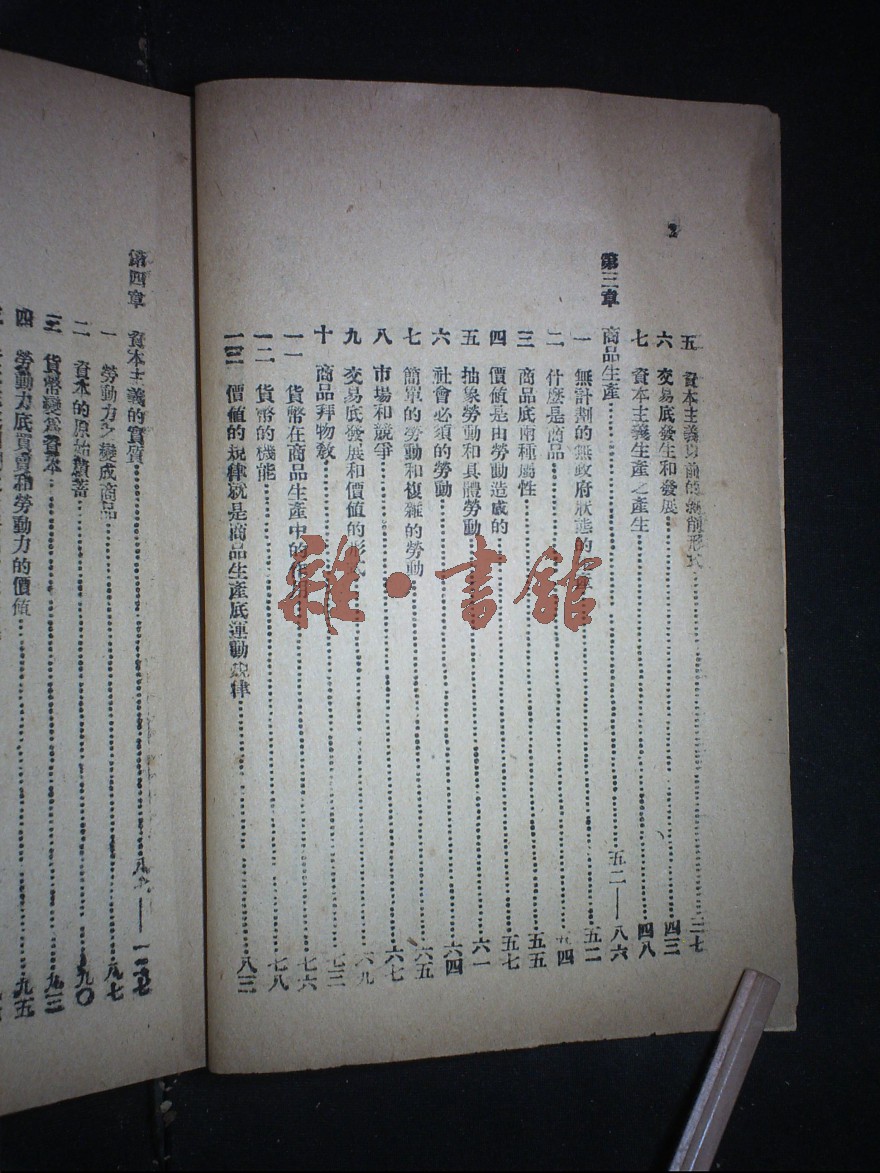 2
五 資本主義以前的剝削形式 三七
六 交易底發生和發展 四三
七 資本主義生產之產生 四八
第三章 商品生產 五二——八六
一 無計劃的無政府狀態的 五二
二 什麼是商品 五四
三 商品底兩種屬性 五五
四 價値是由勞動造成的 五七
五 抽象勞動和具體勞動 六一
六 社會必須的勞動 六四
七 簡單的勞動和複雜的勞動 六五
八 市場和競爭 六七
九 交易底發展和價値的形式 六九
十 商品拜物敎 七三
一一 貨幣在商品生產中的作用 七六
一二 貨幣的機能 七八
一三 價値的規律就是商品生產底運動規律 八三
第四章 資本主義的實質
一 勞動力之變成商品 八七
二 資本的原始積蓄 九〇
三 貨幣變爲資本 九三
四 勞動力底買賣和勞動力的價値 九五
雜·書館